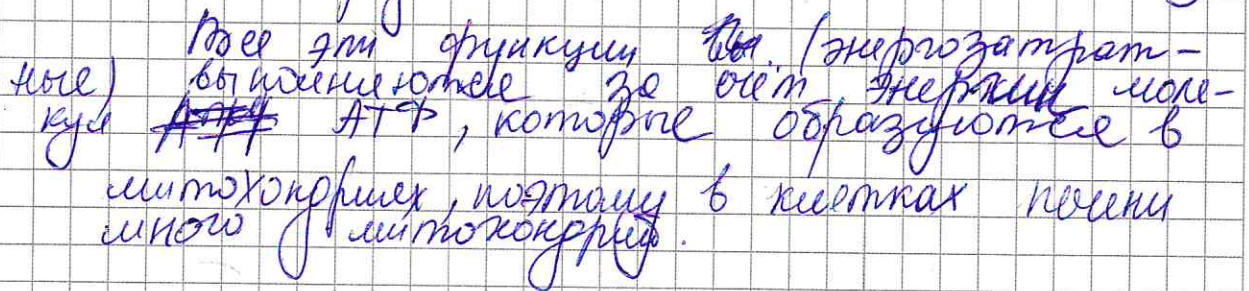 Все эти функции (энергозатрат-
ные) выполняются за счёт энергии моле-
кул АТФ, которые образуются в
митохондриях, поэтому в клетках печени
много митохондрий.